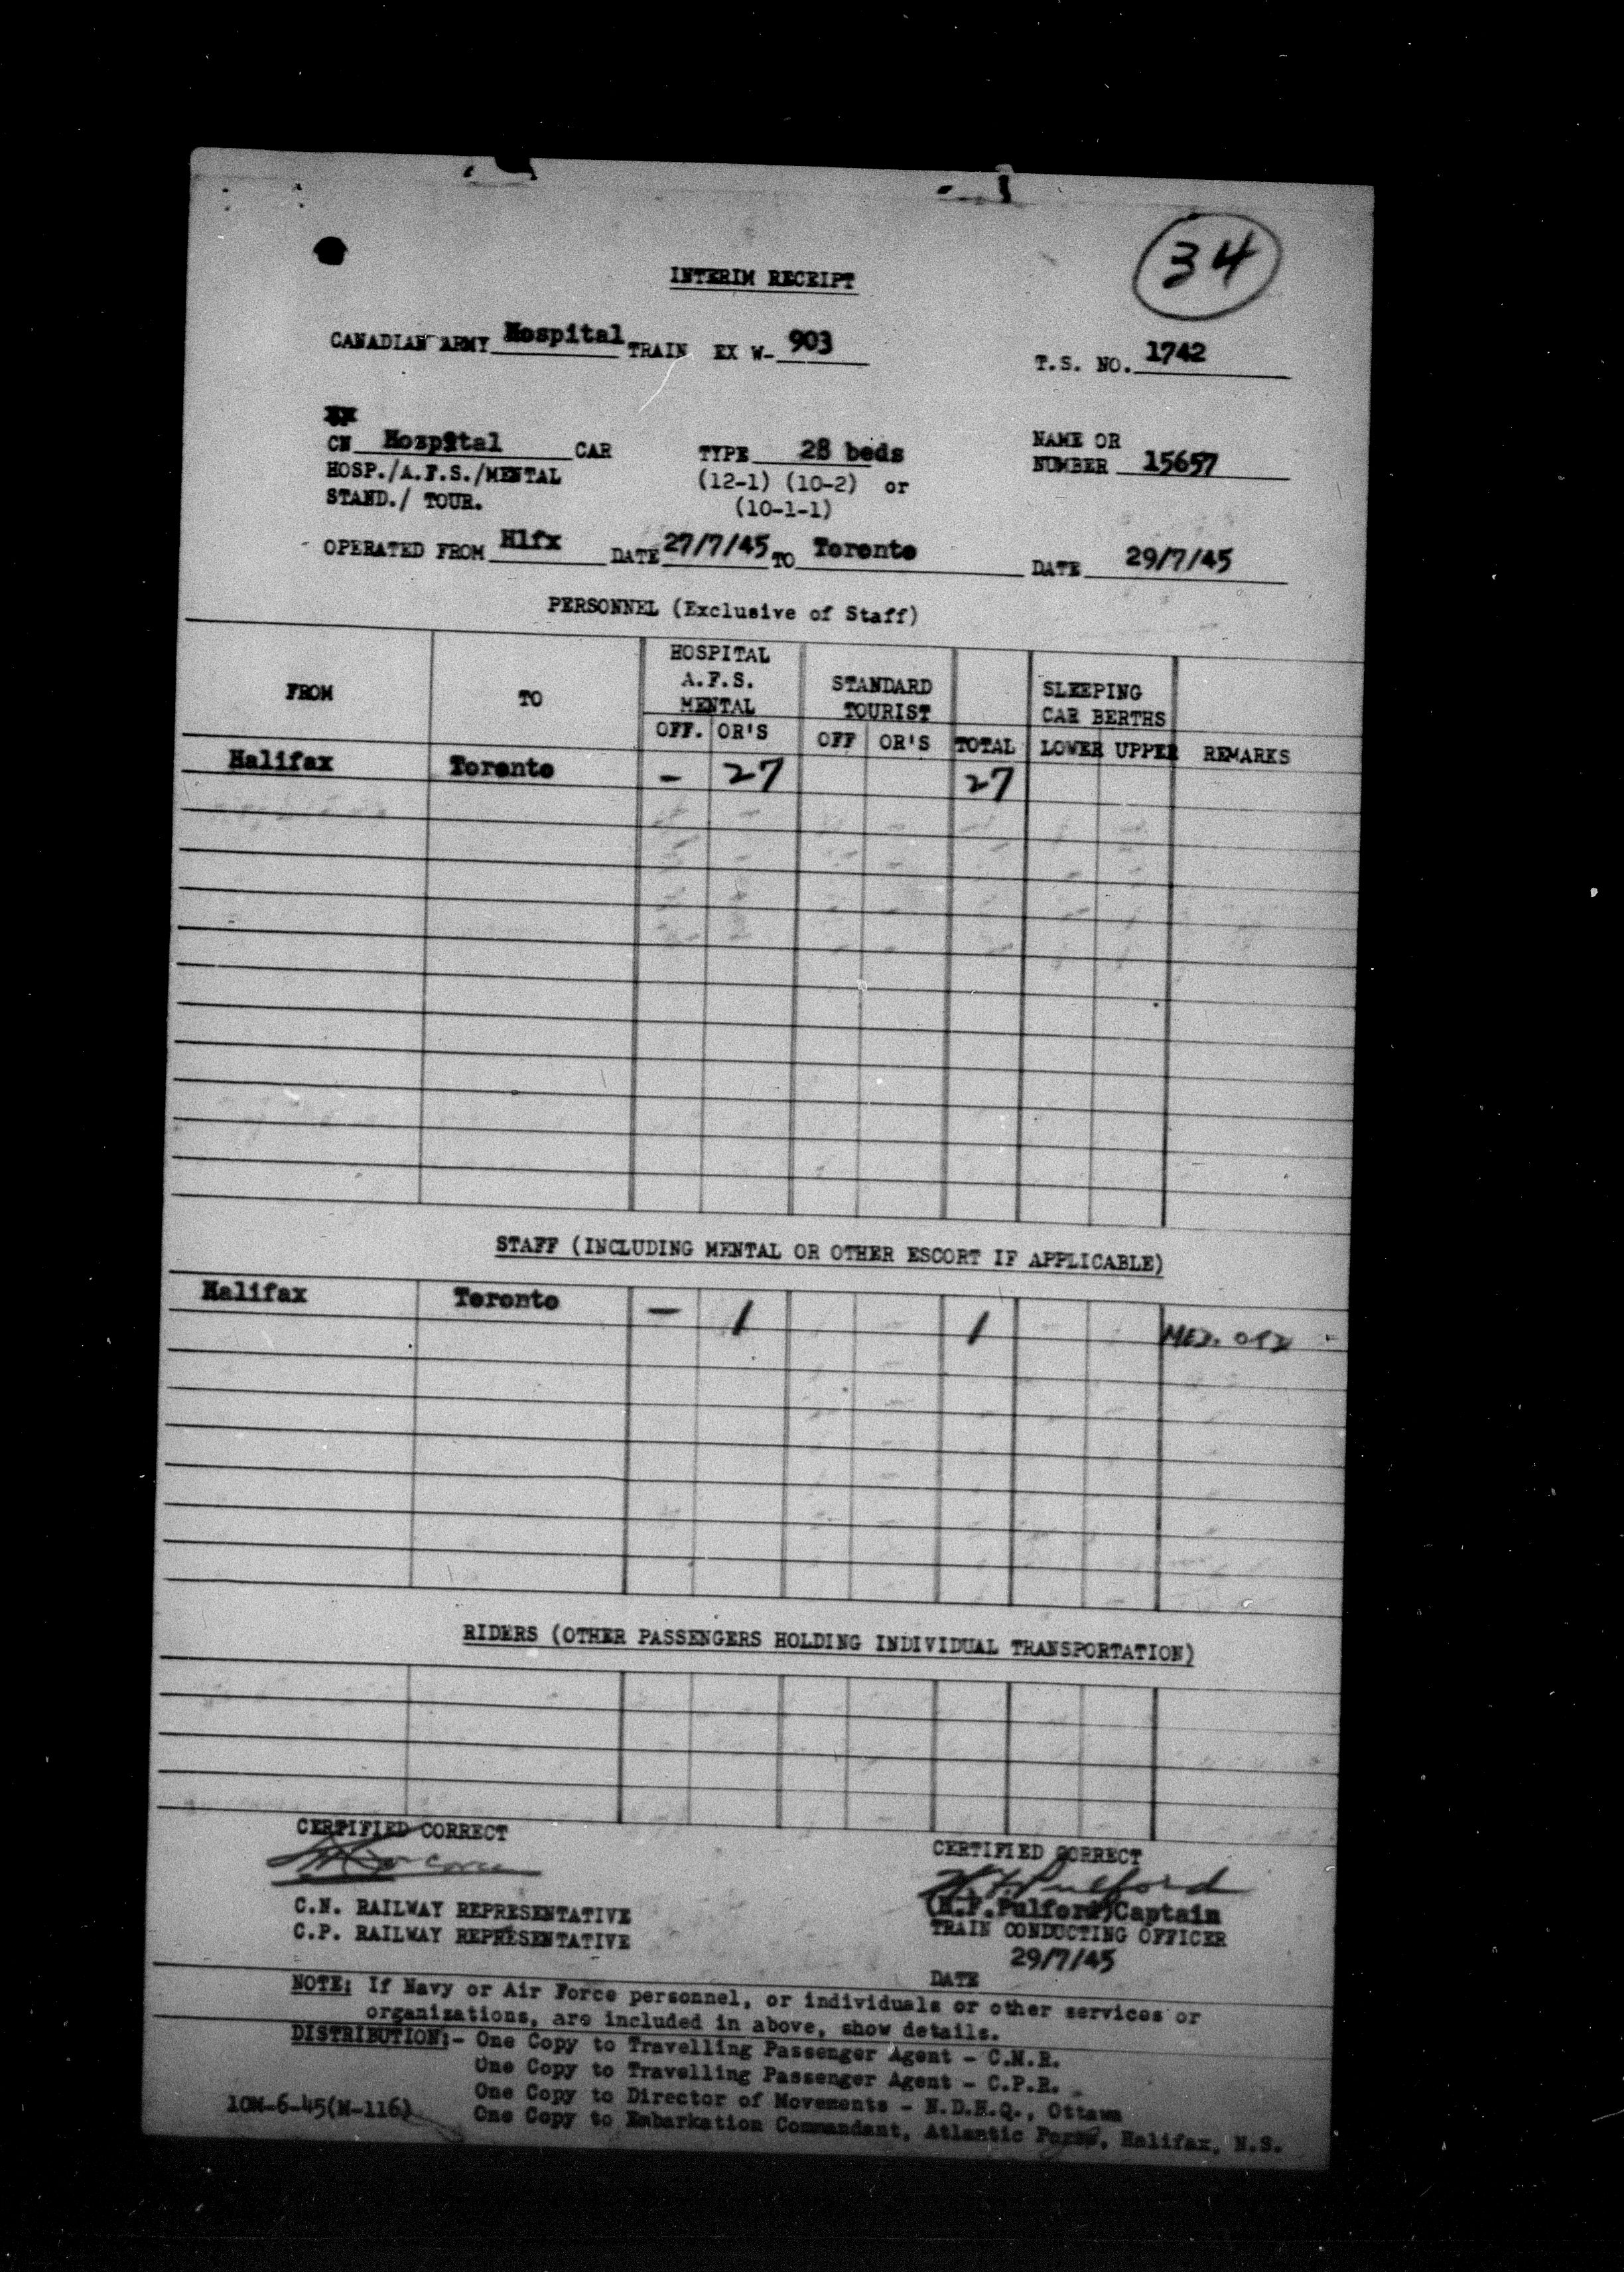 34
INTERIM RECEIPT
CANADIAN ARMY Hospital TRAIN EX W- 903 T.S. NO. 1742
CN Hospital CAR TYPE 28 beds NAME OR
HOSP./A.F.S./MENTAL (12-1) (10-2) or NUMBER 15657
STAND./ TOUR. (10-1-1)
OPERATED FROM Hlfx DATE 27/7/45 TO Toronto DATE 29/7/45
PERSONNEL (Exclusive of Staff)
FROM TO HOSPITAL A.F.S. MENTAL STANDARD TOURIST SLEEPING CAR BERTHS
OFF. OR'S OFF OR'S TOTAL LOWER UPPER REMARKS
Halifax Toronto - 27 27
STAFF (INCLUDING MENTAL OR OTHER ESCORT IF APPLICABLE)
Halifax Toronto - 1 1 MED.
RIDERS (OTHER PASSENGERS HOLDING INDIVIDUAL TRANSPORTATION)
CERTIFIED CORRECT CERTIFIED CORRECT
H.F. Pulford
C.N. RAILWAY REPRESENTATIVE (H.F.Pulford)Captain
C.P. RAILWAY REPRESENTATIVE TRAIN CONDUCTING OFFICER
29/7/45
DATE
NOTE: If Navy or Air Force personnel, or individuals or other services or
organizations, are included in above, show details.
DISTRIBUTION:- One Copy to Travelling Passenger Agent - C.N.R.
One Copy to Travelling Passenger Agent - C.P.R.
One Copy to Director of Movements - N.D.H.Q., Ottawa
10M-6-45(M-116) One Copy to Embarkation Commandant, Atlantic Ports, Halifax, N.S.